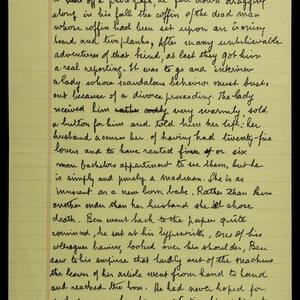 along in his fall the coffin of the dead man
whose coffin had been set upon an ironing
board and two planks. After many unbelievable
adventures of that kind, at last they got him
a real reporting. It was to go and interview
a lady whose scandalous behavior must burst
out because of a divorce proceeding. The lady
received him very warmly sold
a button for him and told him her life; her
husband accuses her of having had twenty-five
lovers and to have rented or six
bachelors appartment to see them, but he
is simply and purely a madman. She is as
innocent as a new born babe. Rather than kiss
another man than her husband she chose
death. Ben went back to the paper quite
convinced, he sat at his typewriter, One of his
colleagues having looked over his shoulder, Ben
saw to his surprise that hardly out of the machine
the leaves of his article went from hand to hand
and reached the boss. He had never hoped for